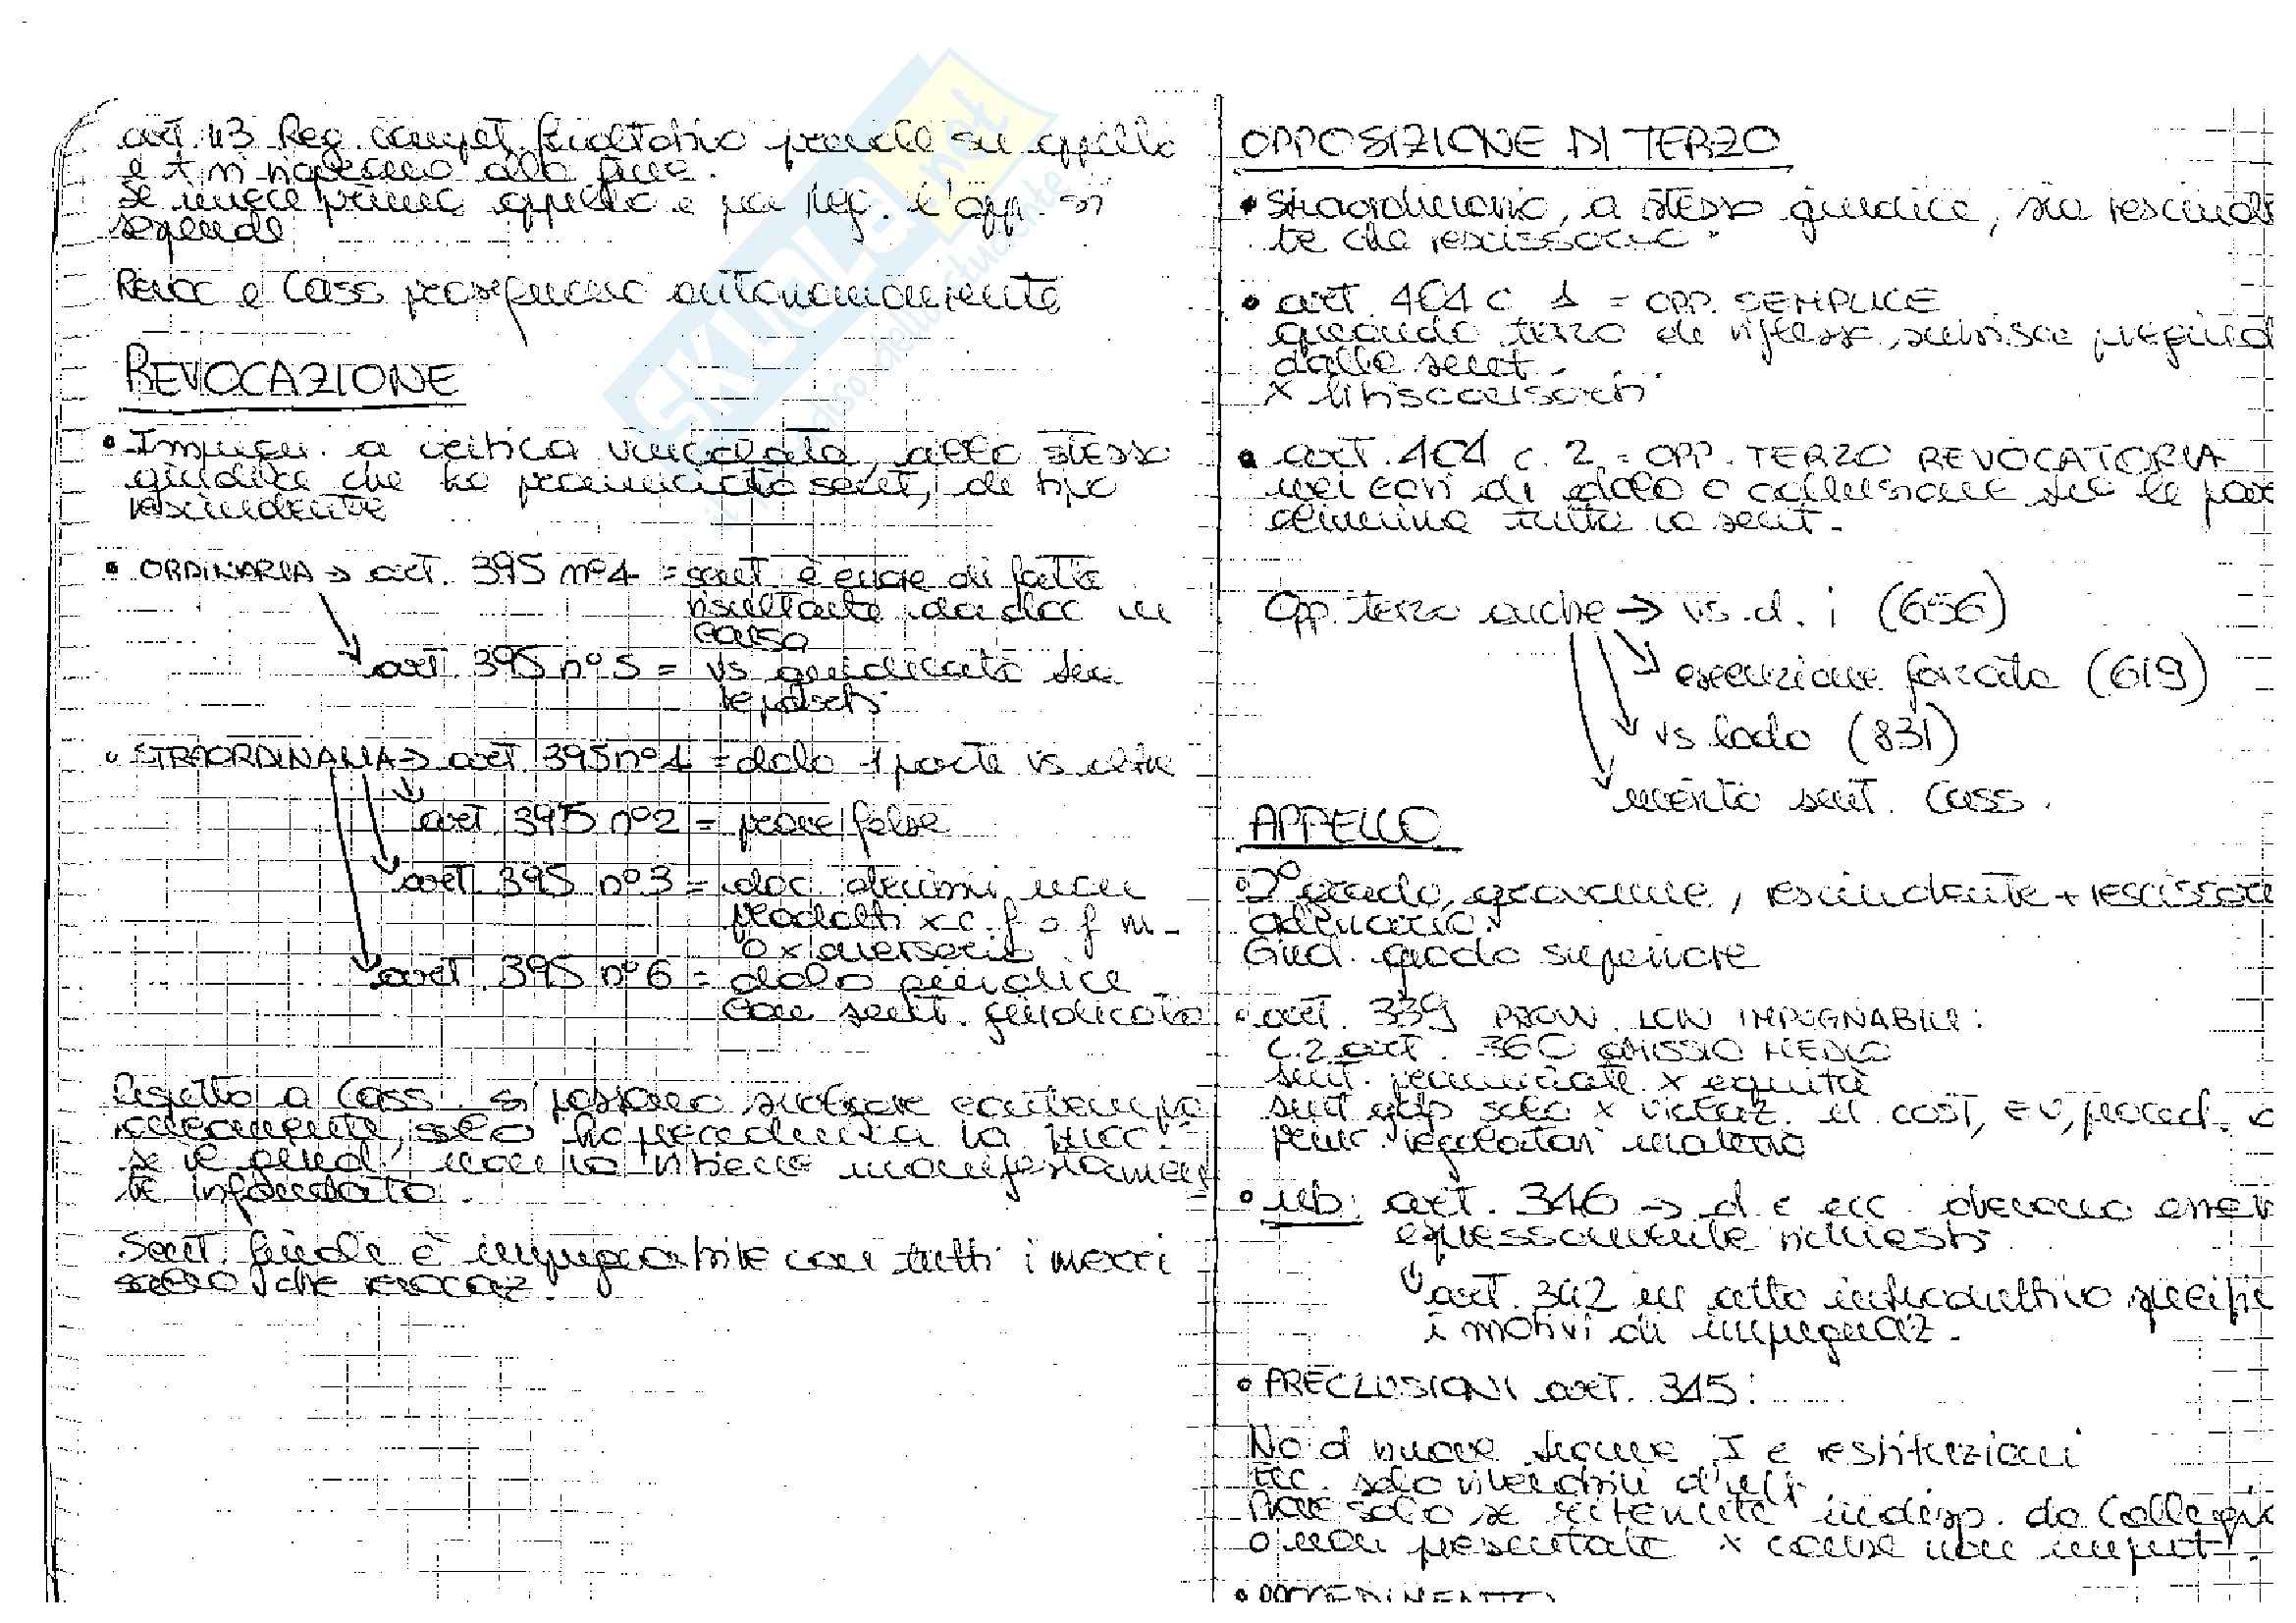 art. 43 Reg. compet. facoltativo prevale su appello
e t. ri riaprono alla fine.
se invece prima appello e poi Reg. l'app. si
sospende
Revoc e Cass proseguono autonomamente
REVOCAZIONE
• Impugn. a critica vincolata, allo stesso
giudice che ha pronunciato sent, di tipo
rescindente
• ORDINARIA → art. 395 n°4 = sent. è errore di fatto
risultante da doc in
causa
art. 395 n°5 = vs giudicato
• STRAORDINARIA → art. 395 n°1 = dolo 1 parte vs altra
art. 395 n°2 = prove false
art. 395 n°3 = doc. decisivi non
prodotti x c. f o f m.
o x avversario
art. 395 n°6 = dolo giudice
con sent. giudicato
Rispetto a Cass. si possono
solo ha precedenza la
se il giud. non la ritiene manifestamen
te infondata.
Sent. finale è impugnabile con tutti i mezzi
salvo che revocaz.
OPPOSIZIONE DI TERZO
• Straordinario, a stesso giudice, sia rescinden
te che rescissorio.
• art. 404 c 1 = OPP. SEMPLICE
quando terzo di riflesso, subisce pregiud
dalla sent.
x litisconsorti
• art. 404 c. 2 = OPP. TERZO REVOCATORIA
nei casi di dolo o collusione tra le par
elimina tutta la sent.
Opp. terzo anche → vs. d. i (656)
esecuzione forzata (619)
vs lodo (831)
merito sent. Cass.
APPELLO
• 2° grado, gravame, rescindente + rescissor
ordinario.
Giud. grado superiore
• art. 339 PROVV. NON IMPUGNABILI:
c. 2 art. 360 OMISSIO MEDIO
sent. pronunciate x equità
sent gdp solo x violaz. n. cost, EU, proced. o
princ. regolatori materia
• nb: art. 346 → d e ecc. devono esser
espressamente richiesti
art. 342 in atto introduttivo specific
i motivi di impugnaz.
• PRECLUSIONI art. 345:
No d nuove tranne I e restituzioni
Ecc. solo rilevabili d'uff.
Prove solo se ritenute indisp. da Collegio
o non presentate x cause non imput.
• PROCEDIMENTO
SKUOLA.net
il paradiso dello studente